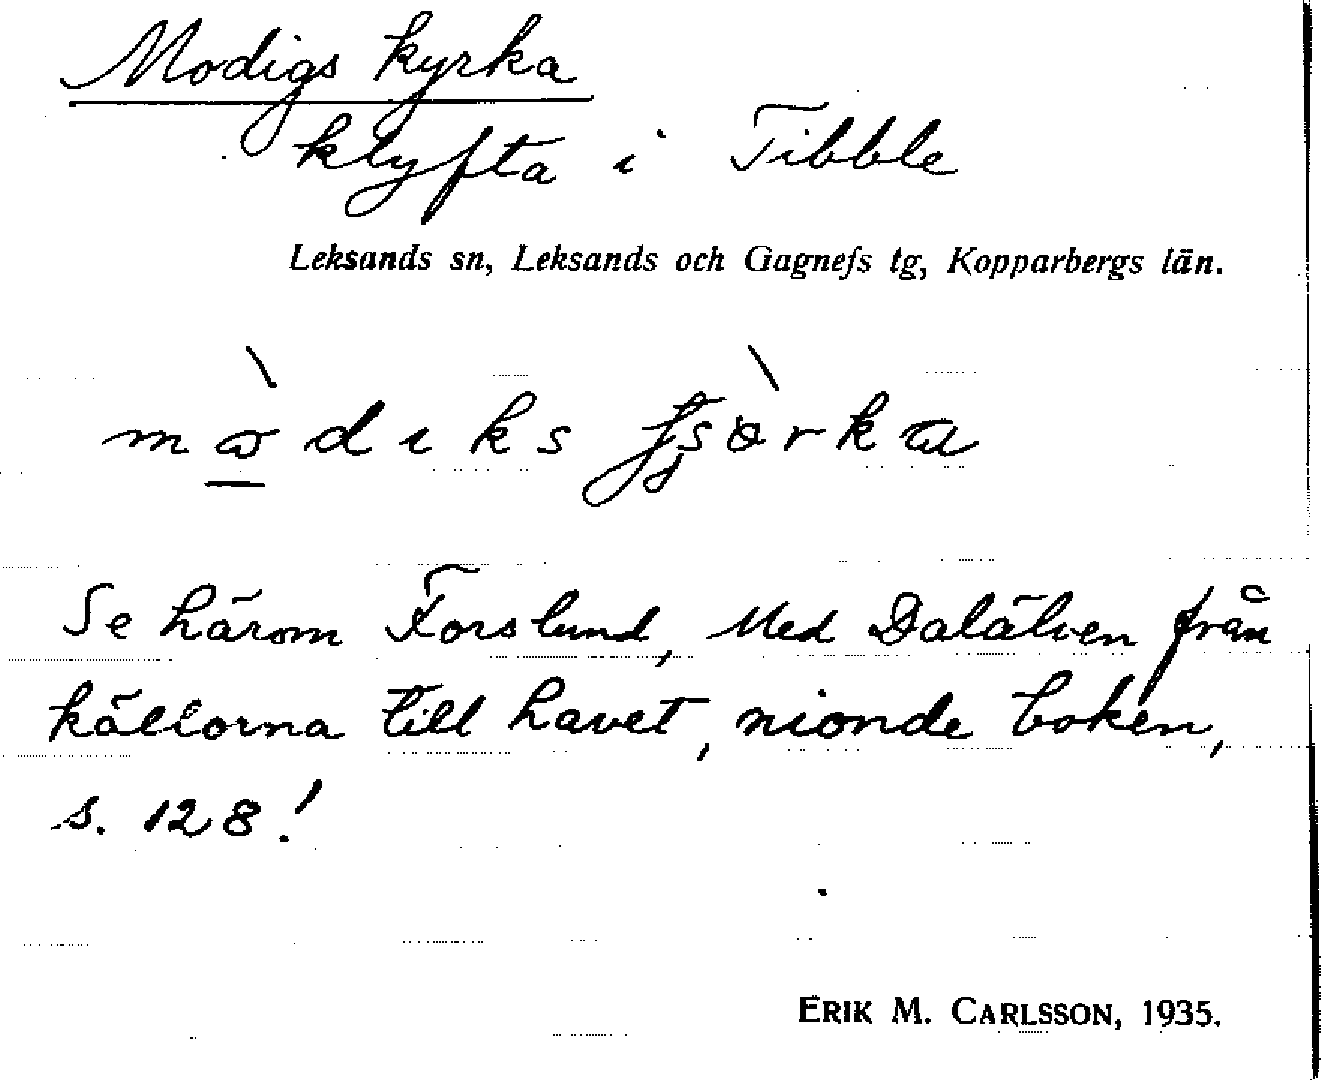 Modigs kyrka
klyfta i Tibble
Leksands sn, Leksands och Gagnefs tg, Kopparbergs län.
Se härom Forslund, Med Dalälven från
källorna till havet, nionde boken,
s. 128!
ERIK M. CARLSSON, 1935.